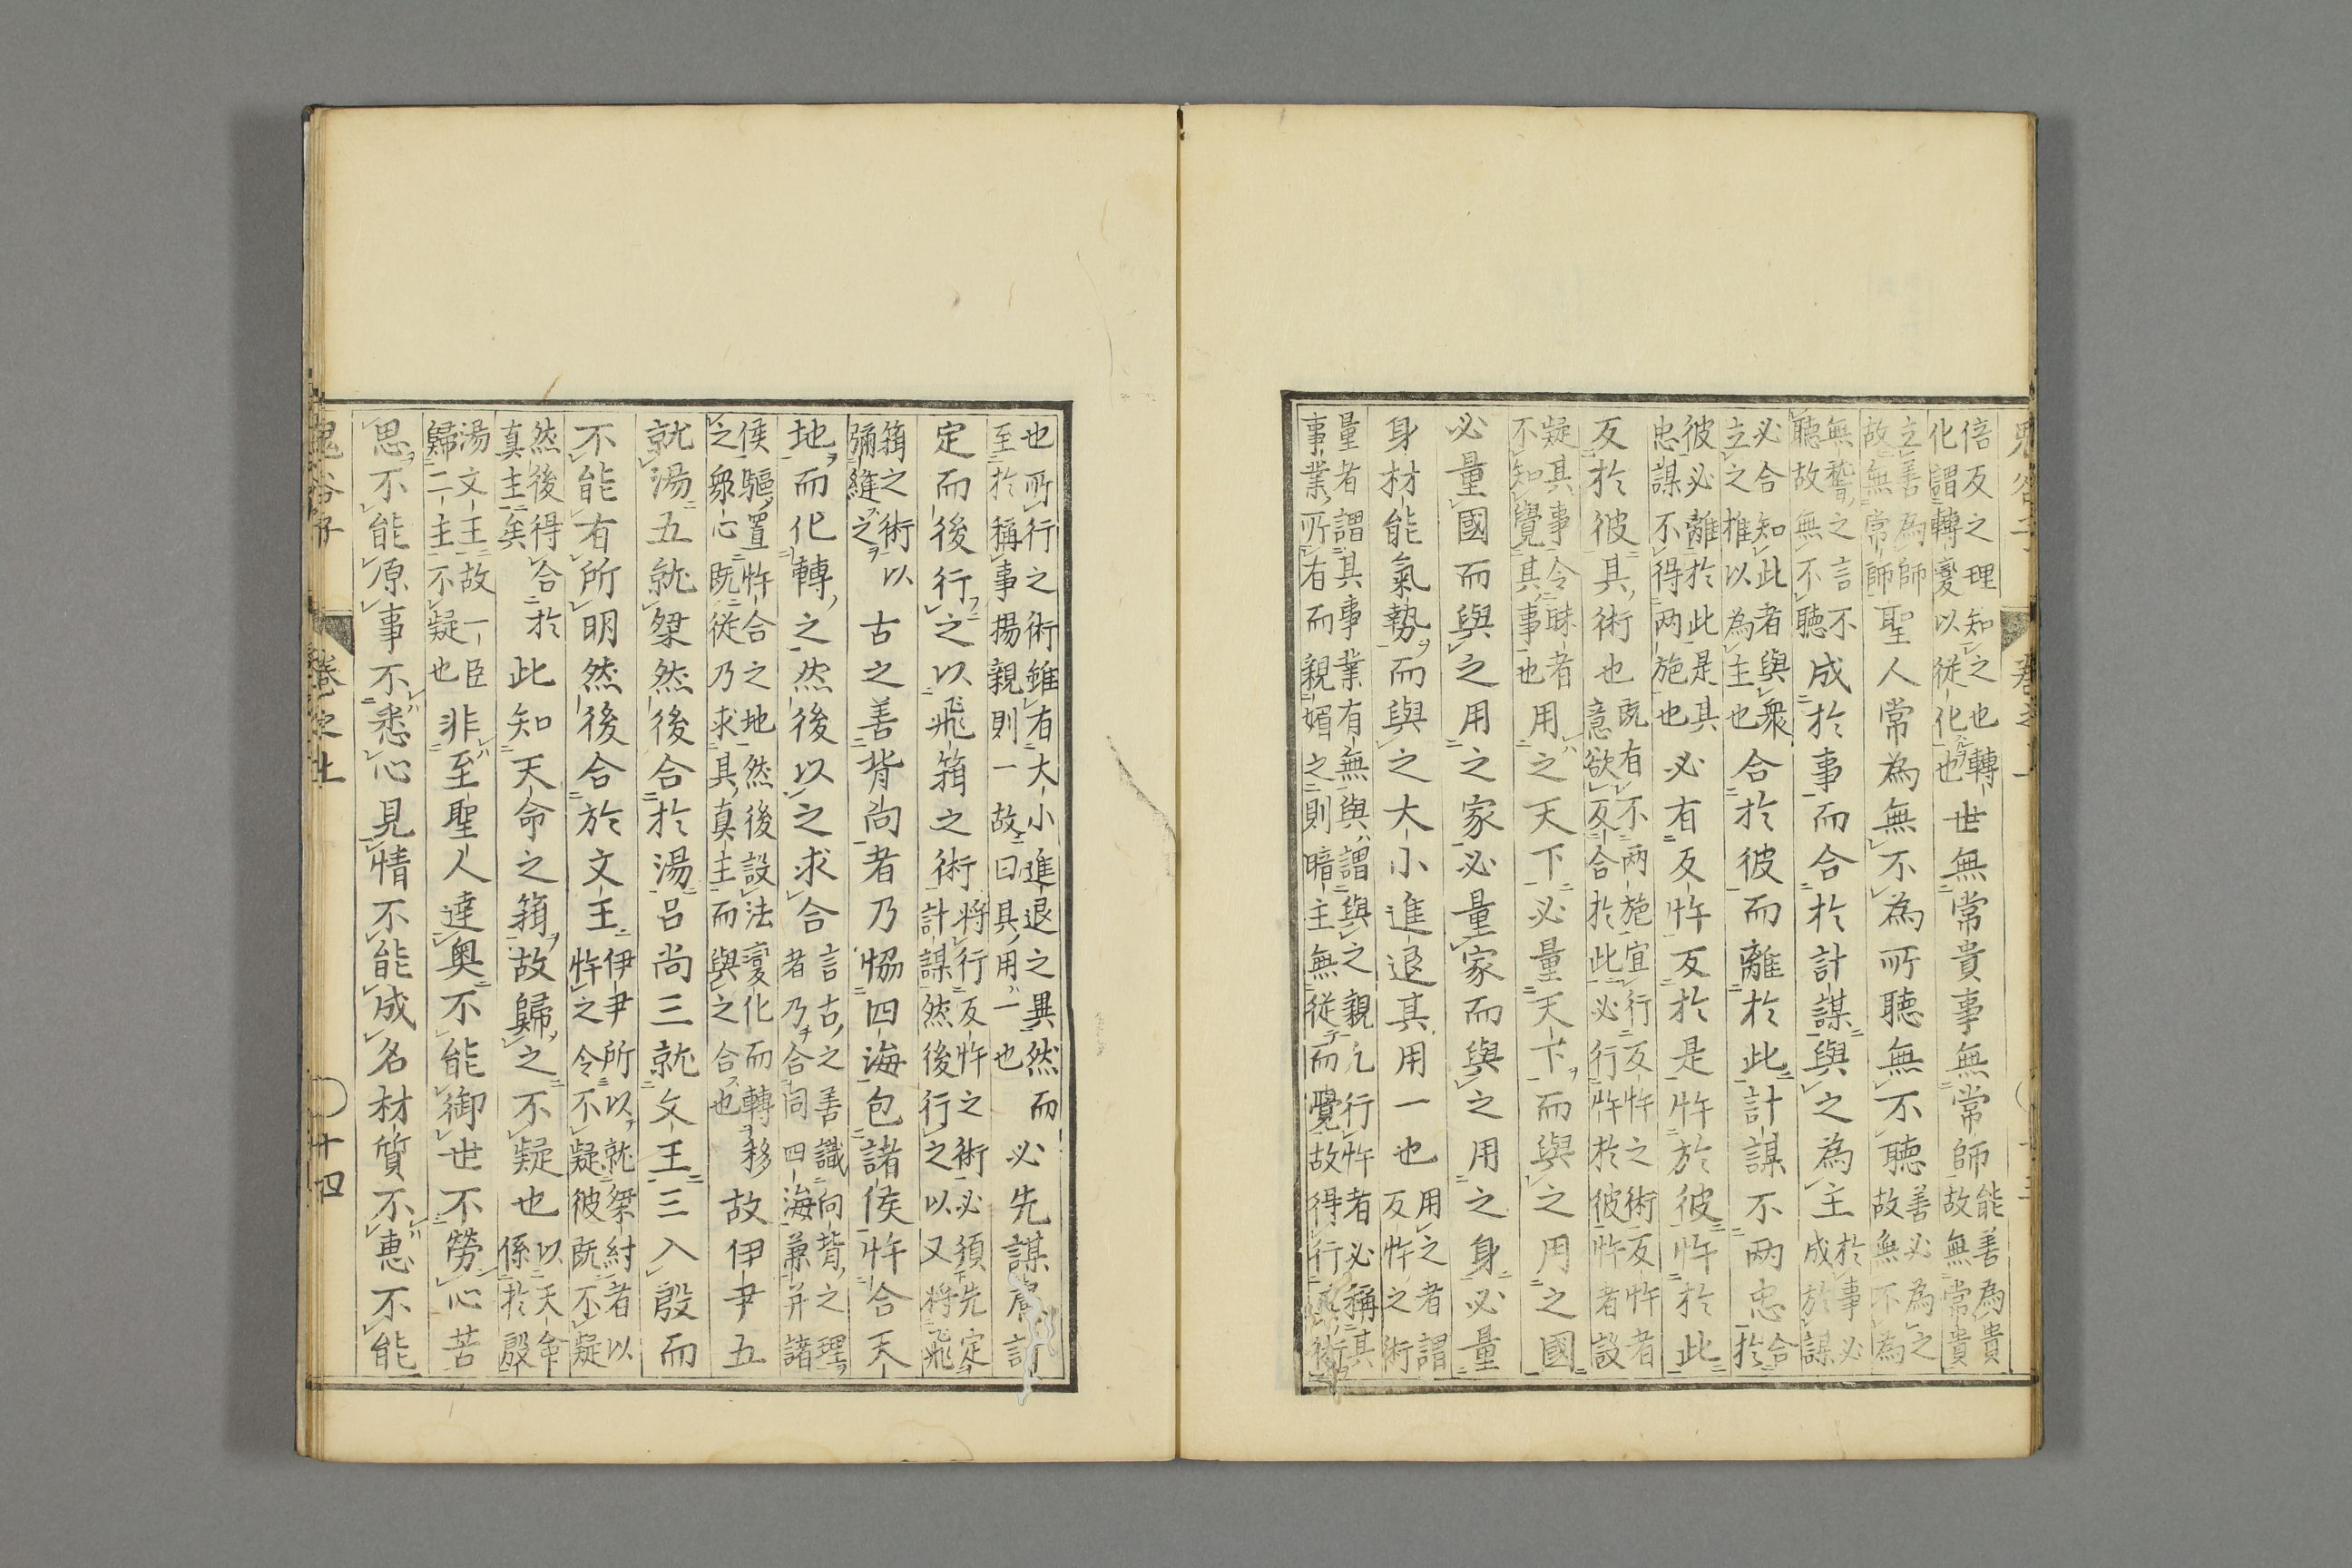 倍反之理知之也轉
化謂轉變以從化也
世無常貴事無常師
能善為貴
故無常貴
立善為師
故無常師
聖人常為無不為所聽無不聽
善必為之
故無不為
無稽之言不
聽故無不聽
成於事而合於計謀與之為主
於事必
成於謀
必合知此者與衆
立之推以為主也
合於彼而離於此計謀不兩忠
合
於
彼必離於此是其
忠謀不得兩施也
必有反忤反於是忤於彼忤於此
反於彼其術也
既有不兩施宜行反忤之術反忤者
意欲反合於此必行忤於彼忤者設
疑其事令昧者
不知覺其事也
用之天下必量天下而與之用之國
必量國而與之用之家必量家而與之用之身必量
身材能氣勢而與之大小進退其用一也
用之者謂
反忤之術
量者謂其事業有無與謂與之親凡行忤者必稱其
事業所有而親媚之則暗主無從而覺故得行其術
也所行之術雖有大小進退之異然而
至於稱事揚親則一故曰其用一也
必先謀慮計
定而後行之以飛箝之術
將行反忤之術必須先定
計謀然後行之以又將飛
箝之術以
彌縫之
古之善背向者乃恊四海包諸侯忤合天
地而化轉之然後以之求合
言古之善識向背之理
者乃合同四海兼并諸
侯驅置忤合之地然後設法變化而轉移
之衆心既從乃求其真主而與之合也
故伊尹五
就湯五就桀然後合於湯呂尚三就文王三入殷而
不能有所明然後合於文王
伊尹所以就桀紂者以
忤之令不疑彼既不疑
然後得合於
真主矣
此知天命之箝故歸之不疑也
以天命
係於殷
湯文王故一臣
歸二主不疑也
非至聖人達奥不能御世不勞心苦
思不能原事不悉心見情不能成名材質不恵不能
鬼谷子 卷之上 十四